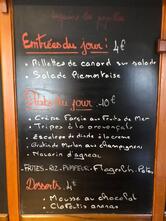 Entrées du jour : 4€
. Rillettes de canard sur salade
. Salade Piémontaise
Plats du jour - 10€
. Crêpe Farcie aux Fruits de Mer
. Tripes à la provençale
. Escalope de dinde à la crème
. de Merlan aux champignons
. Navarin d'agneau
FRITES - RIZ -
Desserts 4€
. Mousse au chocolat
. Clafoutis ananas